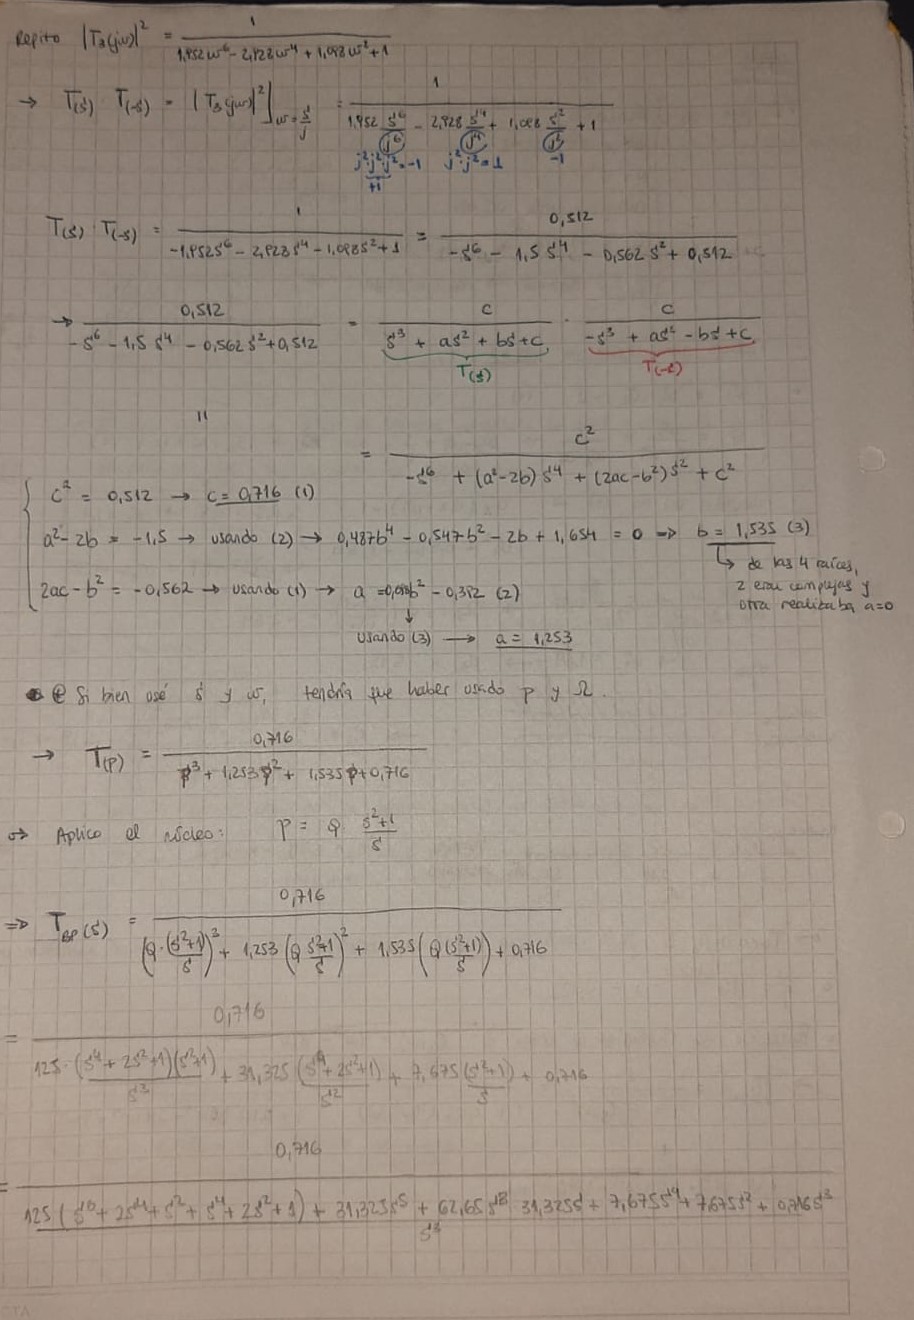 Repito |T₃(jw)|² = 1 / (1,952w⁶ - 2,928w⁴ + 1,098w² + 1)
→ T(s) T(-s) = |T₃(jw)|²]w=s/j = 1 / (1,952 s⁶/j⁶ - 2,928 s⁴/j⁴ + 1,098 s²/j² + 1)
j²·j²·j²=-1 j²·j²=1 -1
+1
T(s) T(-s) = 1 / (-1,952s⁶ - 2,928s⁴ - 1,098s² + 1) = 0,512 / (-s⁶ - 1,5s⁴ - 0,562s² + 0,512)
→ 0,512 / (-s⁶ - 1,5s⁴ - 0,562s² + 0,512) = c / (s³ + as² + bs + c) · c / (-s³ + as² - bs + c)
T(s) T(-s)
"
= c² / (-s⁶ + (a²-2b)s⁴ + (2ac-b²)s² + c²)
c² = 0,512 → c = 0,716 (1)
a²-2b = -1,5 → usando (2) → 0,487b⁴ - 0,547b² - 2b + 1,654 = 0 ⇒ b = 1,535 (3)
↳ de las 4 raíces,
2 eran complejas y
otra realizaba a=0
2ac-b² = -0,562 → usando (1) → a = b² - 0,392 (2)
usando (3) → a = 1,253
Si bien usé s y w, tendría que haber usado p y Ω.
→ T(p) = 0,716 / (p³ + 1,253p² + 1,535p + 0,716)
⇒ Aplico el núcleo: p = Q (s²+1)/s
⇒ T_BP(s) = 0,716 / ((Q·(s²+1)/s)³ + 1,253(Q (s²+1)/s)² + 1,535(Q(s²+1)/s) + 0,716)
= 0,716 / (125·(s⁴+2s²+1)(s²+1)/s³ + 31,325(s⁴+2s²+1)/s² + 7,675(s²+1)/s + 0,716)
= 0,716 / ((125(s⁶+2s⁴+s²+s⁴+2s²+1) + 31,325s⁵ + 62,65s³ 31,325s + 7,675s⁴ + 7,675s² + 0,716s³)/s³)